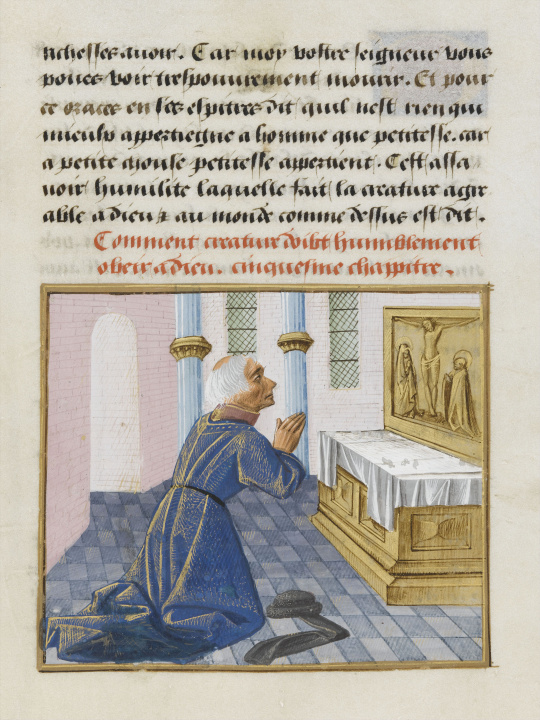 richesses auoir. Car moy vostre seigneur vous
poues voir trespourement mourir. Et pour
ce oraces en ses espitres dit quil nest rien qui
mieulx appertiegne a homme que petitesse. car
a petite chouse petitesse appertient. Cest assa
uoir humilite laquelle fait la creature agre
able a dieu & au monde comme dessus est dit.
Comment creature doibt humblement
obeir a dieu. cinquesme chappitre.